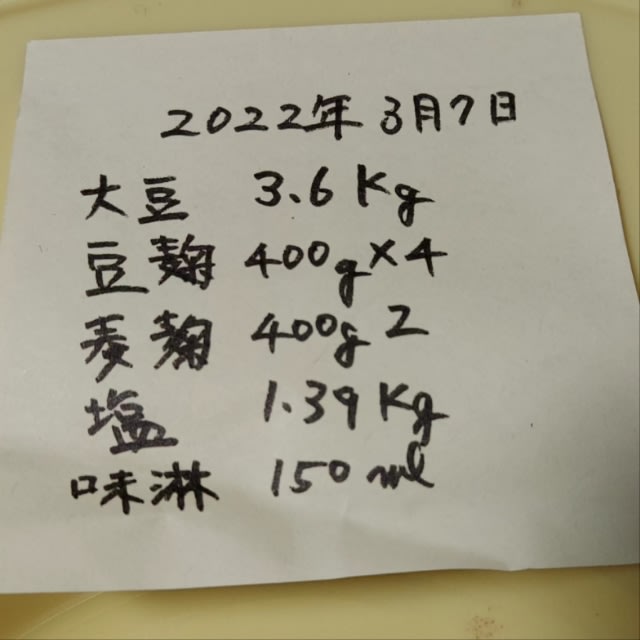 2022年 3月7日
大豆 3.6 Kg
豆麹 400g×4
麦麹 400g 2
塩 1.39 Kg
味淋 150 ml